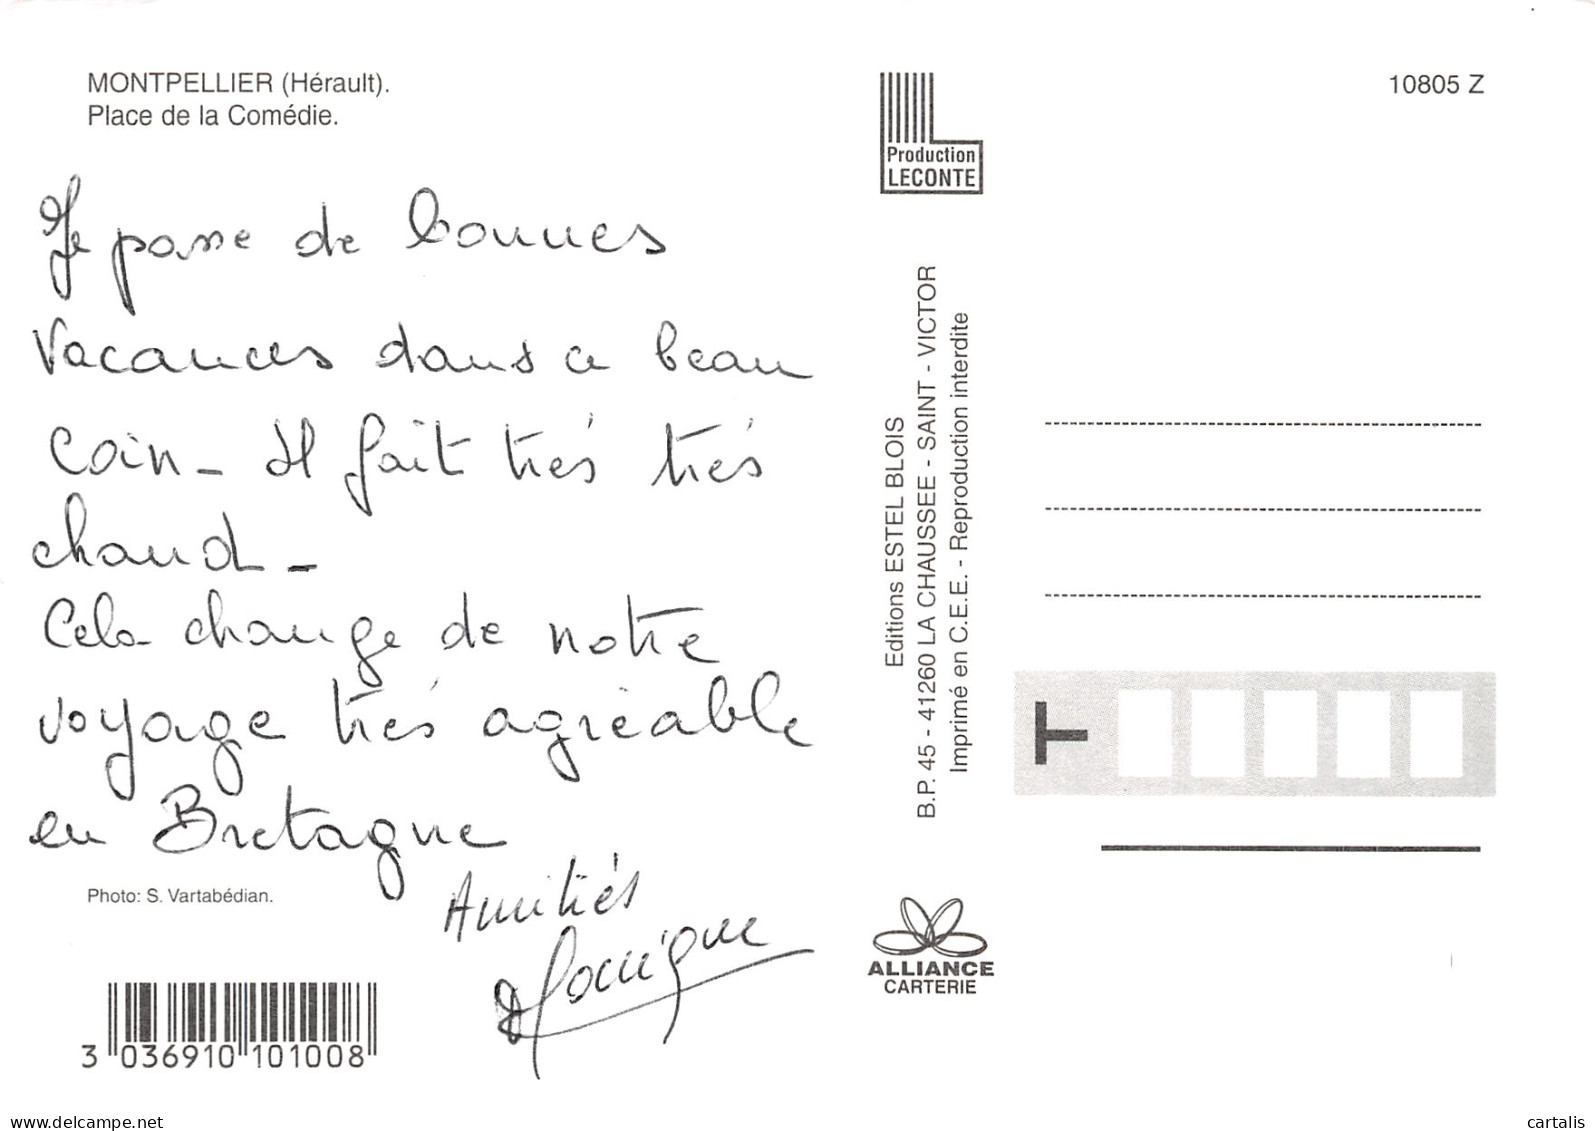 MONTPELLIER (Hérault).
Place de la Comédie.
Je passe de bonnes
vacances dans ce beau
coin_ Il fait très très
chaud_
Cela change de notre
voyage très agréable
en Bretagne
Amitiés
Monique
Photo: S. Vartabédian.
3 036910 101008
Production
LECONTE
Editions ESTEL BLOIS
B.P. 45 - 41260 LA CHAUSSEE - SAINT - VICTOR
Imprimé en C.E.E. - Reproduction interdite
ALLIANCE
CARTERIE
10805 Z
T
www.delcampe.net
cartalis